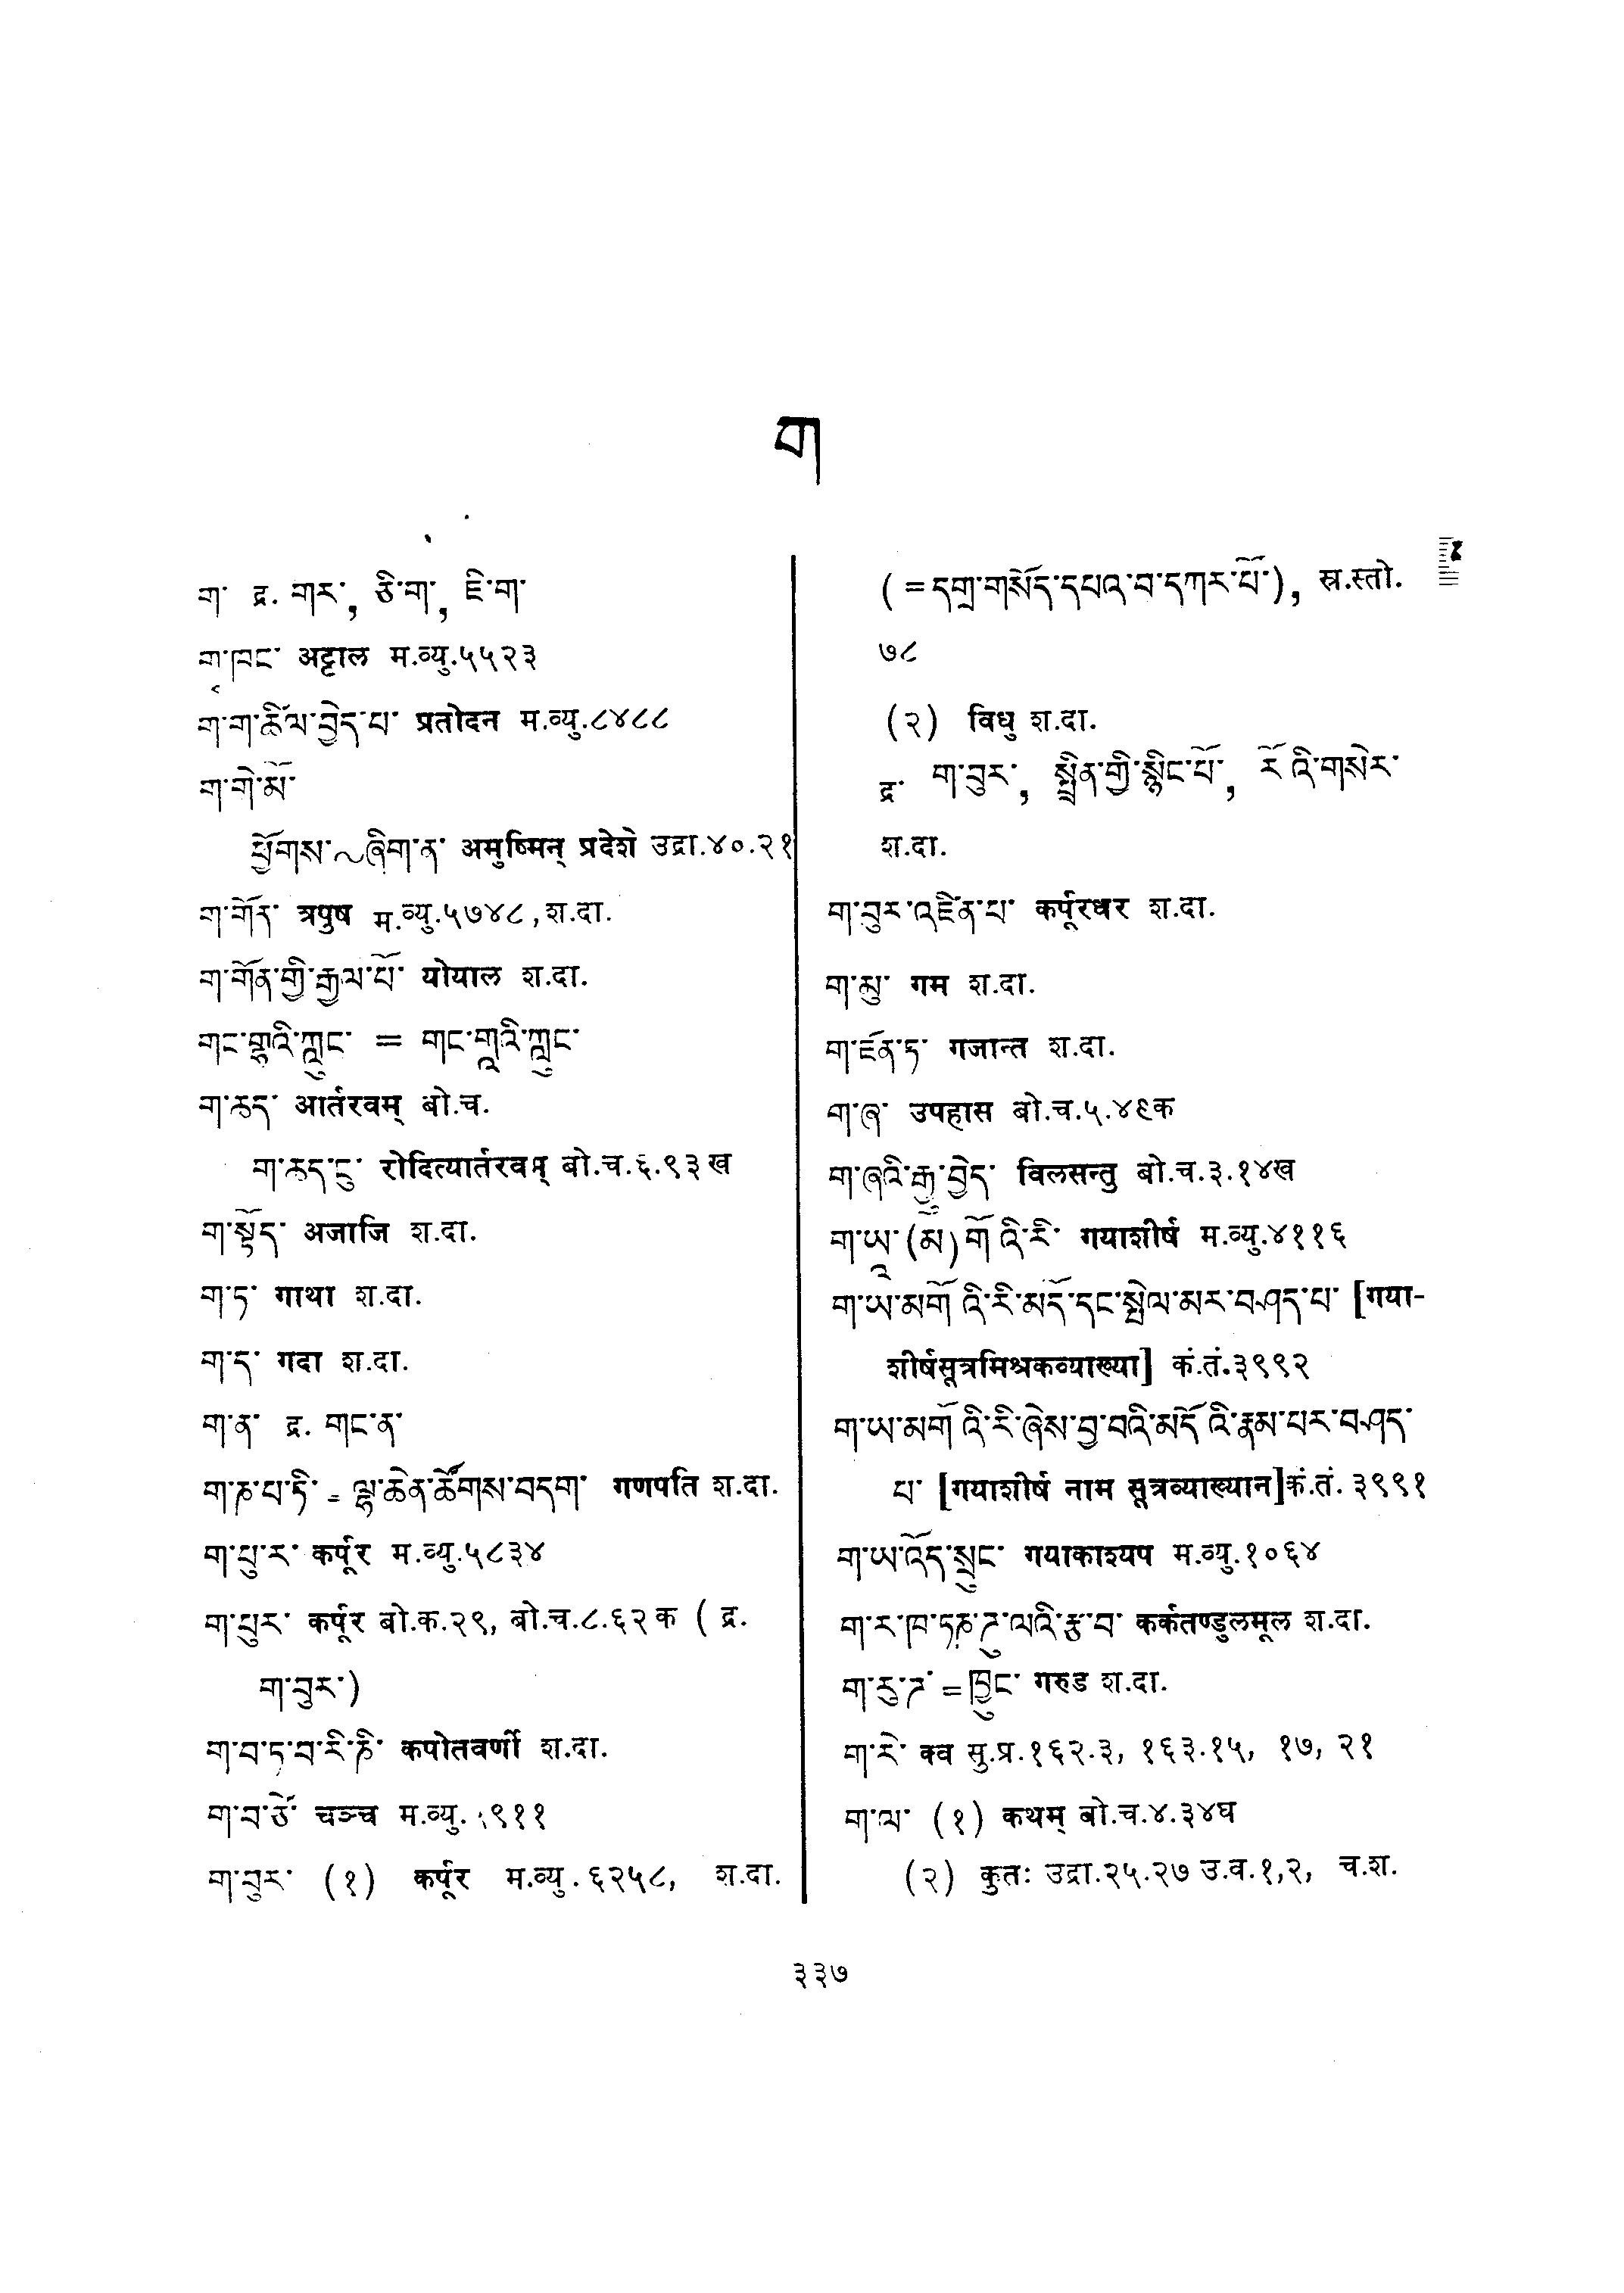 ག
ག་ द्र. གར་, ཅི་ག་, ཇི་ག་
ག་ཁང་ अट्टाल म.व्यु.५५२३
ག་ག་ཚིལ་བྱེད་པ་ प्रतोदन म.व्यु.८४८८
ག་གེ་མོ་
ཕྱོགས་~ཞིག་ན་ अमुष्मिन् प्रदेशे उद्रा.४०.२१
ག་གོན་ त्रपुष म.व्यु.५७४८, श.दा.
ག་གོན་གྱི་རྒྱལ་པོ་ योयाल श.दा.
གང་གྷཱའི་ཀླུང་ = གང་གཱའི་ཀླུང་
ག་ཆད་ आर्तरवम् बो.च.
ག་ཆད་ངུ་ रोदित्यार्तरवम् बो.च.६.९३ख
ག་སྟོད་ अजाजि श.दा.
ག་ཏ་ गाथा श.दा.
ག་ད་ गदा श.दा.
ག་ན་ द्र. གང་ན་
ག་ཎ་པ་ཏི་ = ལྷ་ཆེན་ཚོགས་བདག་ गणपति श.दा.
ག་པུ་ར་ कर्पूर म.व्यु.५८३४
ག་པུར་ कर्पूर बो.क.२९, बो.च.८.६२क ( द्र.
ག་བུར་)
ག་བ་ཏ་བ་རི་ཎི་ कपोतवर्णी श.दा.
ག་བ་ཅོ་ चञ्च म.व्यु.
ག་བུར་ (१) कर्पूर म.व्यु.६२५८, श.दा.
(=དགྲ་གསོད་དཔའ་བ་དཀར་པོ་), स्र.स्तो.
७८
(२) विधु श.दा.
द्र. ག་བུར་, སྤྲིན་གྱི་སྙིང་པོ་, རོའི་གསེར་
श.दा.
ག་བུར་འཛིན་པ་ कर्पूरधर श.दा.
ག་མུ་ गम श.दा.
ག་ཛོན་ཏ་ गजान्त श.दा.
ག་ཞ་ उपहास बो.च.५.४९क
ག་ཞའི་རྒྱུ་བྱེད་ विलसन्तु बो.च.३.१४ख
ག་ཡཱ་(མ)གོའི་རི་ गयाशीर्ष म.व्यु.४११६
ག་ཡ་མགོའི་རི་མདོ་དང་སྤེལ་མར་བཤད་པ་ [गया-
शीर्षसूत्रमिश्रकव्याख्या] कं.तं.३९९२
ག་ཡ་མགོའི་རི་ཞེས་བྱ་བའི་མདོའི་རྣམ་པར་བཤད་
པ་ [गयाशीर्ष नाम सूत्रव्याख्यान]कं.तं. ३९९१
ག་ཡ་འོད་སྲུང་ गयाकाश्यप म.व्यु.१०६४
ག་ར་ཁ་ཏཎ་ཌུ་ལའི་རྩ་བ་ कर्कतण्डुलमूल श.दा.
ག་རུ་ཌ་ = ཁྱུང་ गरुड श.दा.
ག་རེ་ क्व सु.प्र.१६२.३, १६३.१५, १७, २१
ག་ལ་ (१) कथम् बो.च.४.३४घ
(२) कुतः उद्रा.२५.२७ उ.व.१,२, च.श.
३३७